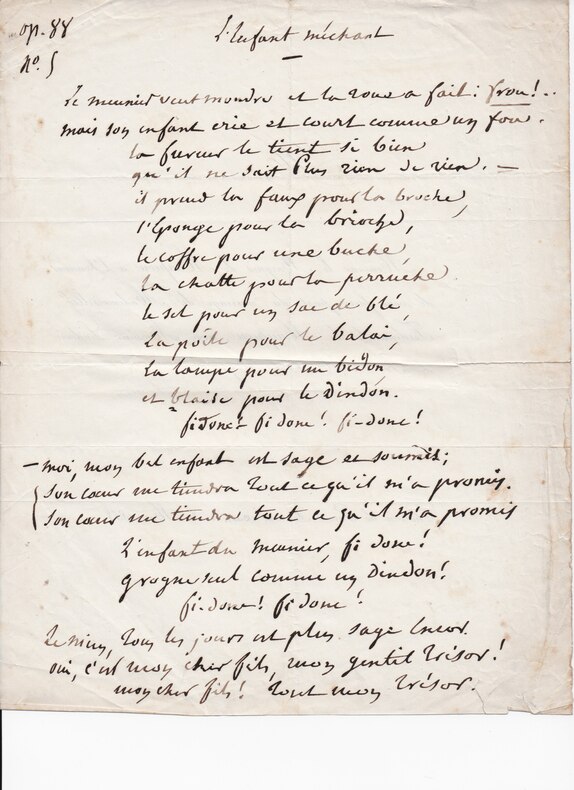 op. 88
L'Enfant méchant
No. 5
Le meunier veut moudre et la roue a fait: frou!..
mais son enfant crie et court comme un fou.
la fureur le tient si bien
qu'il ne sait Plus rien de rien. —
il prend la faux pour la broche,
l'Eponge pour la brioche,
le coffre pour une buche,
la chatte pour la perruche.
le sel pour un sac de blé,
La poële pour le balai,
La lampe pour un bidon
et blaise pour le Dindon.
fi donc! fi donc! fi-donc!
— moi, mon bel enfant est sage et soumis;
son cœur me tiendra tout ce qu'il m'a promis.
son cœur me tiendra tout ce qu'il m'a promis
L'enfant du meunier, fi donc!
grogne seul comme un Dindon!
fi-donc! fi donc!
Le mien, tous les jours est plus sage encor.
oui, c'est mon cher fils, mon gentil trésor!
mon cher fils! tout mon trésor.